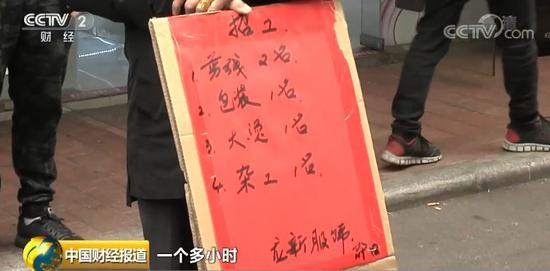 CCTV 2
财经
CCTV
招工
1. 剪线 2名
2. 包装 1名
3. 大烫 1名
4. 杂工 1名
新服饰
中国财经报道 一个多小时